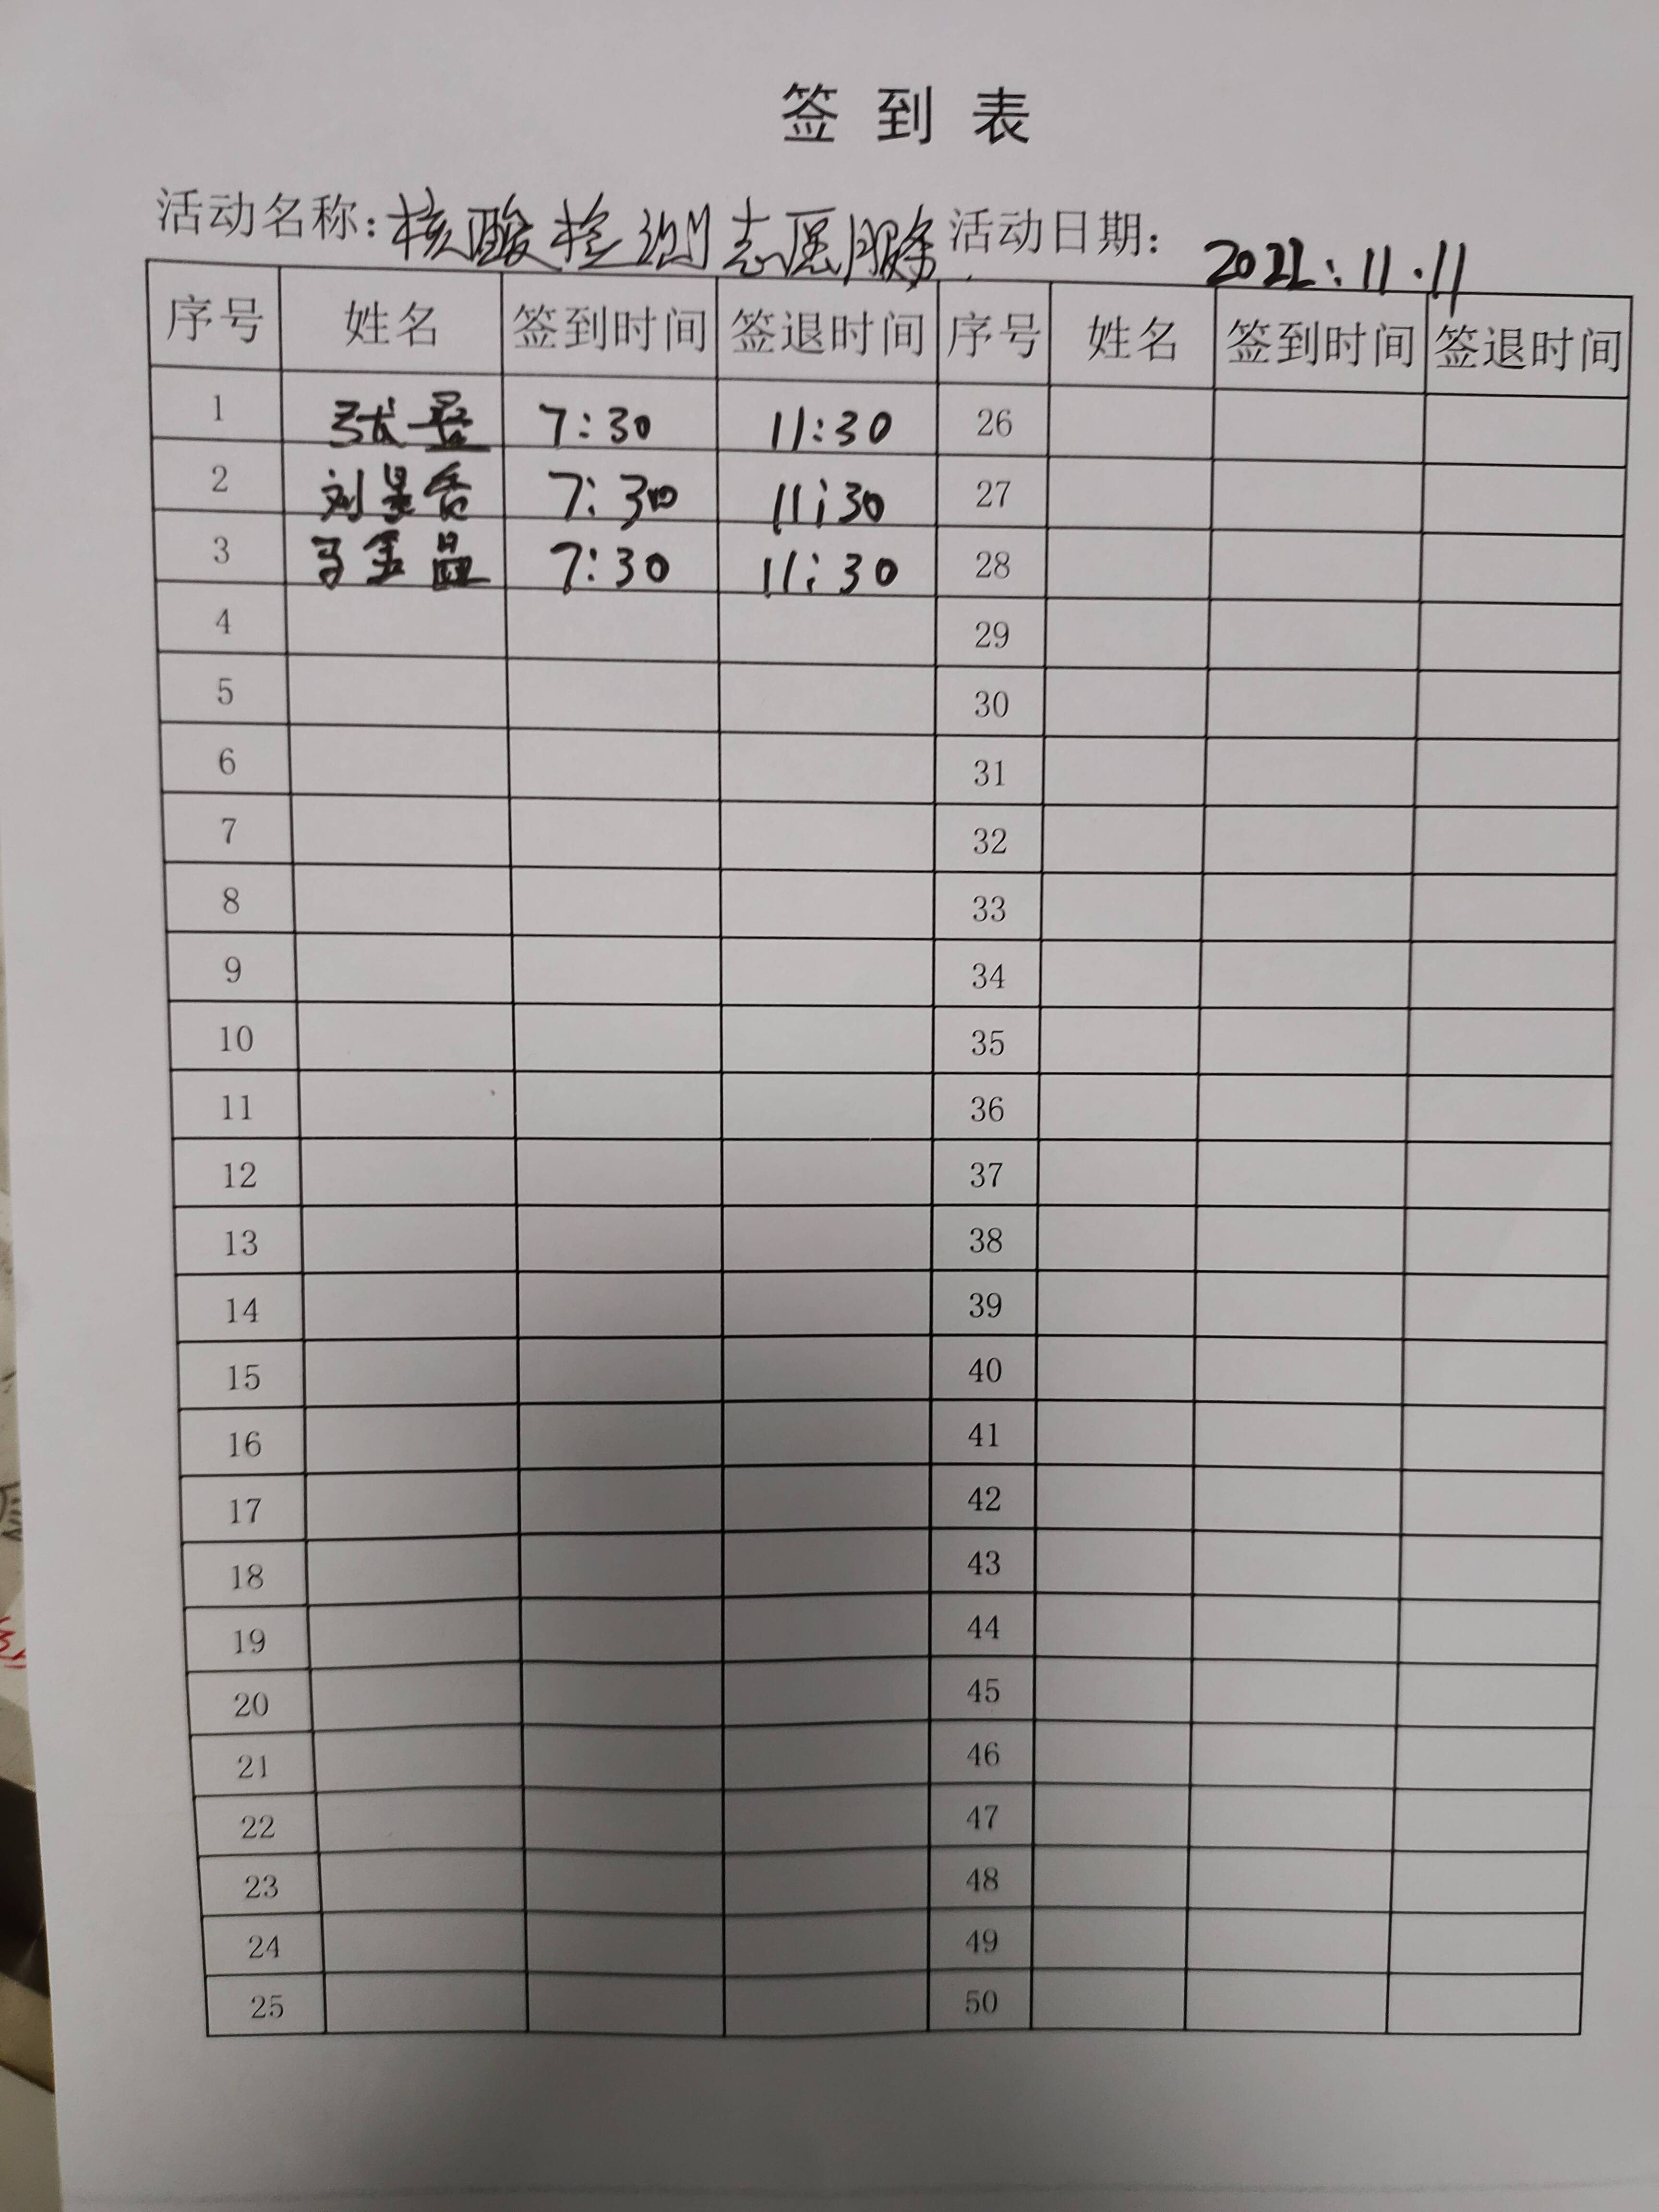 签到表
活动名称：核酸检测志愿服务 活动日期：2022.11.11
序号 姓名 签到时间 签退时间 序号 姓名 签到时间 签退时间
1 张 7:30 11:30 26
2 刘 7:30 11:30 27
3 马 7:30 11:30 28
4 29
5 30
6 31
7 32
8 33
9 34
10 35
11 36
12 37
13 38
14 39
15 40
16 41
17 42
18 43
19 44
20 45
21 46
22 47
23 48
24 49
25 50